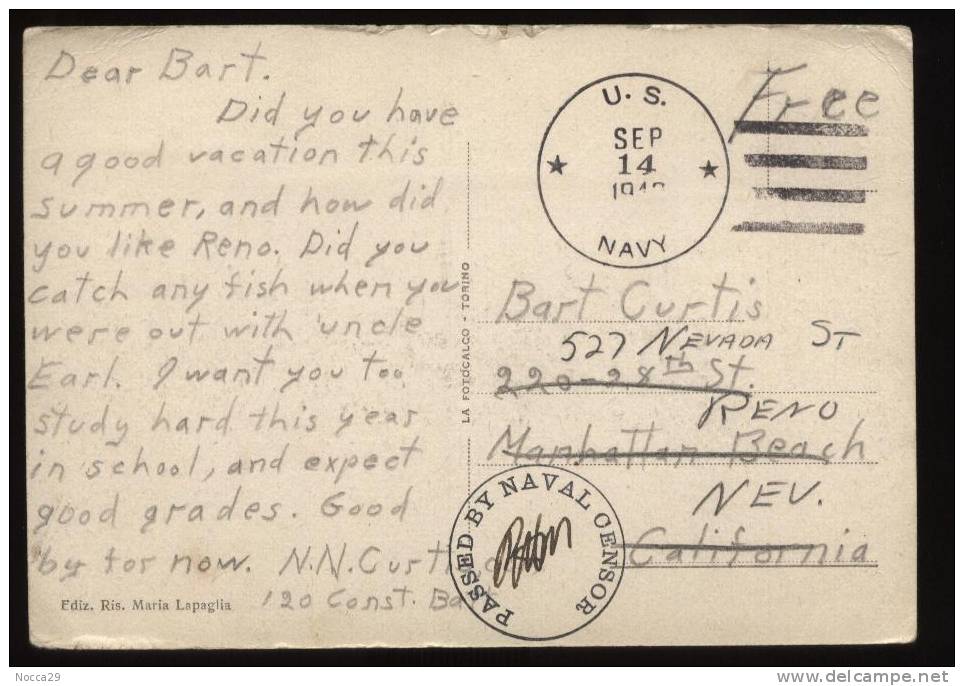 Dear Bart.
Did you have
a good vacation this
summer, and how did
you like Reno. Did you
catch any fish when you
were out with uncle
Earl. I want you too
study hard this year
in school, and expect
good grades. Good
by for now. N.N. Curtis
120 Const. Batt
Ediz. Ris. Maria Lapaglia
LA FOTOCALCO - TORINO
U. S.
SEP
14
NAVY
Free
Bart Curtis
527 NEVADA ST
220-28th St.
RENO
Manhattan Beach
NEV.
California
PASSED BY NAVAL CENSOR
Nocca29
www.delcampe.net